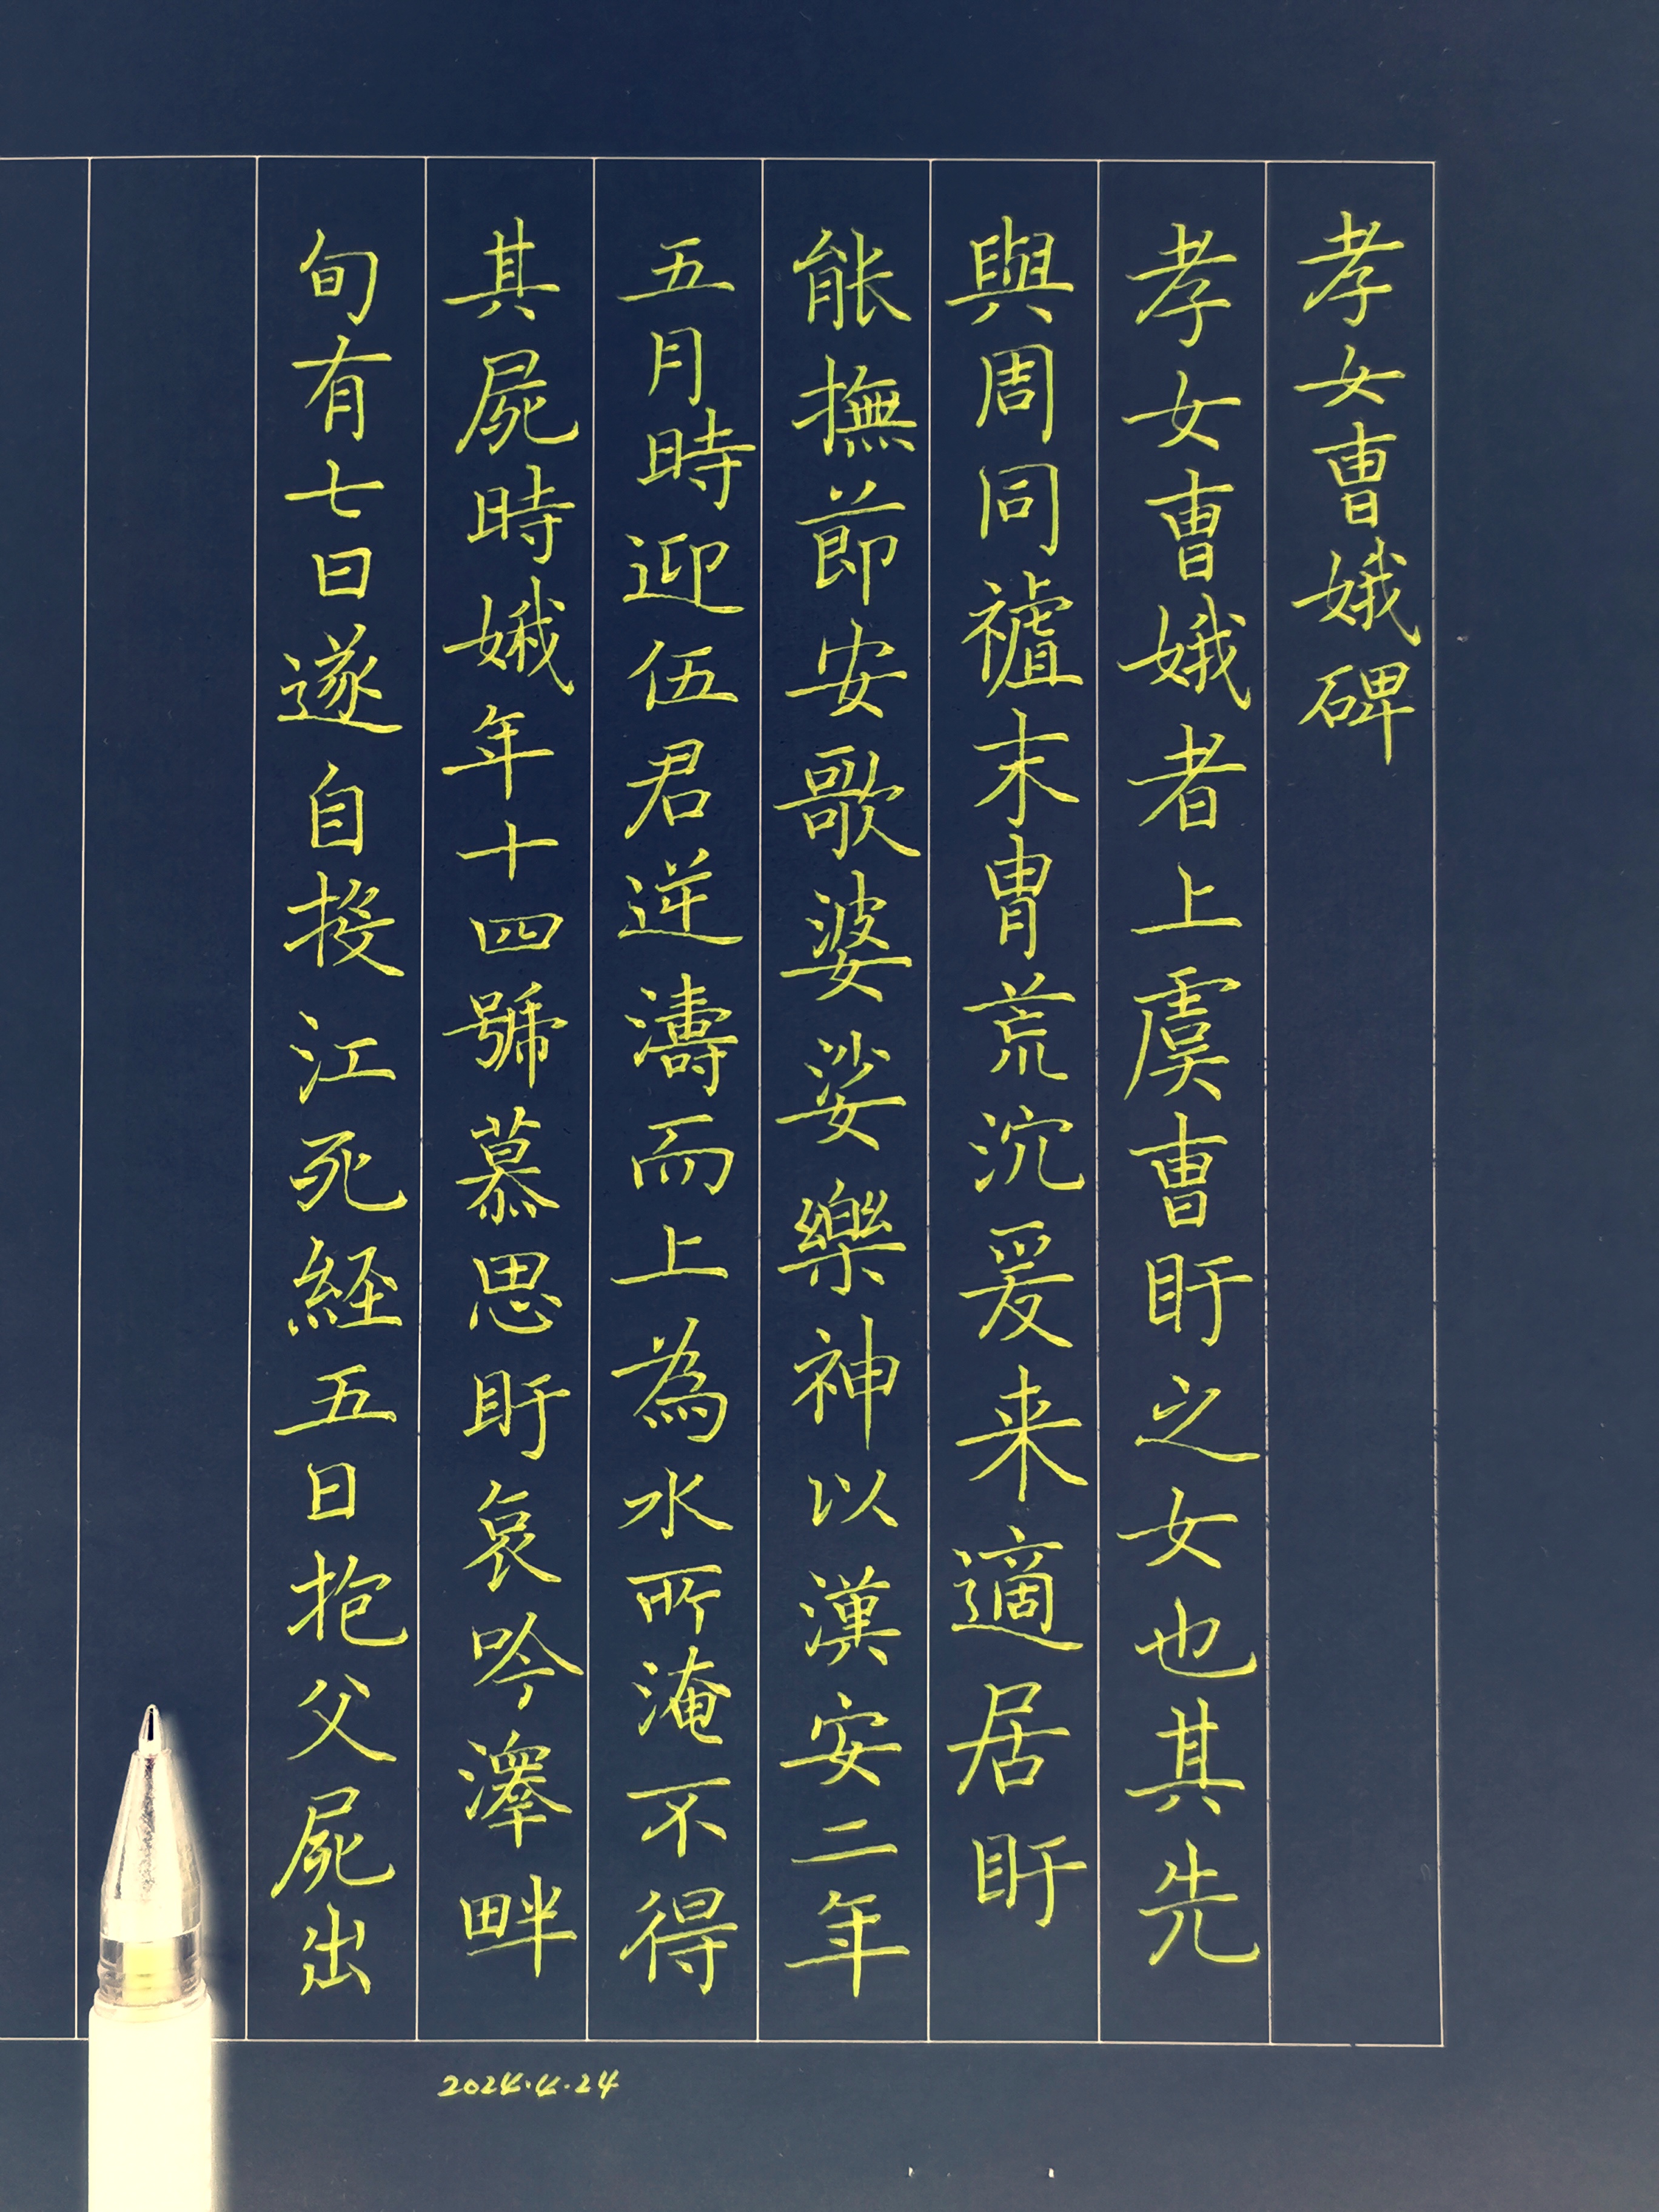 孝女曹娥碑
孝女曹娥者上虞曹盱之女也其先
與周同褈末胄荒沉爰来適居盱
能撫節安歌婆娑樂神以漢安二年
五月時迎伍君逆濤而上為水所淹不得
其屍時娥年十四號慕思盱哀吟澤畔
旬有七日遂自投江死経五日抱父屍出
2024.4.24